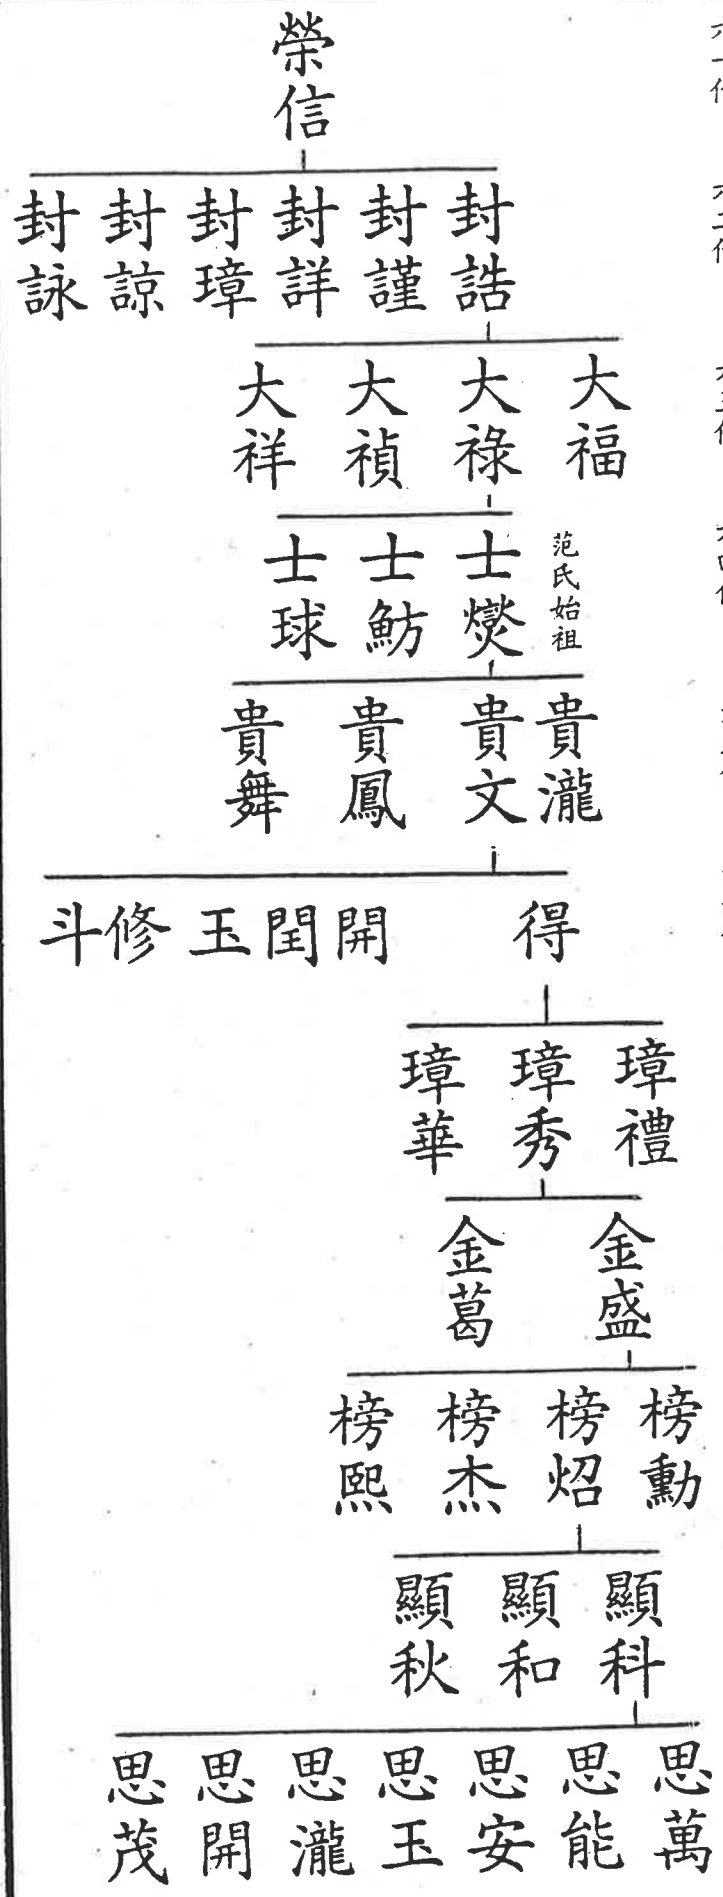 榮信
封誥
封謹
封詳
封璋
封諒
封詠
大福
大祿
大禎
大祥
范氏始祖
士燮
士魴
士球
貴瀧
貴文
貴鳳
貴舞
得
開
閏
玉
修
斗
璋禮
璋秀
璋華
金盛
金葛
榜勳
榜炤
榜杰
榜熙
顯科
顯和
顯秋
思萬
思能
思安
思玉
思瀧
思開
思茂